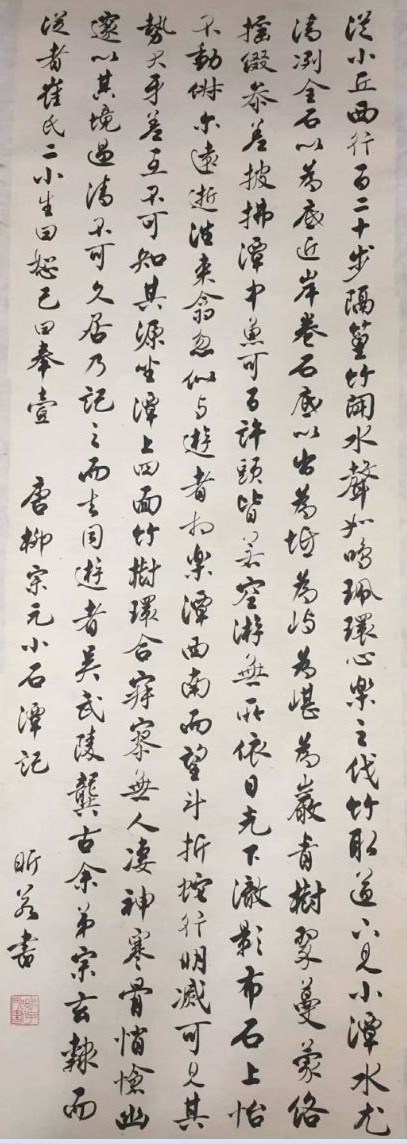 從小丘西行百二十步隔篁竹聞水聲如鳴珮環心樂之伐竹取道下見小潭水尤
清冽全石以為底近岸卷石底以出為坻為嶼為嵁為巖青樹翠蔓蒙絡
搖綴參差披拂潭中魚可百許頭皆若空游無所依日光下澈影布石上怡
不動俶尔遠逝往來翕忽似与遊者相樂潭西南而望斗折蛇行明滅可見其
勢犬牙差互不可知其源坐潭上四面竹樹環合寂寥無人凄神寒骨悄愴幽
邃以其境過清不可久居乃記之而去同遊者吳武陵龔古余弟宗玄隸而
從者崔氏二小生曰恕己曰奉壹 唐柳宗元小石潭記 昕若書